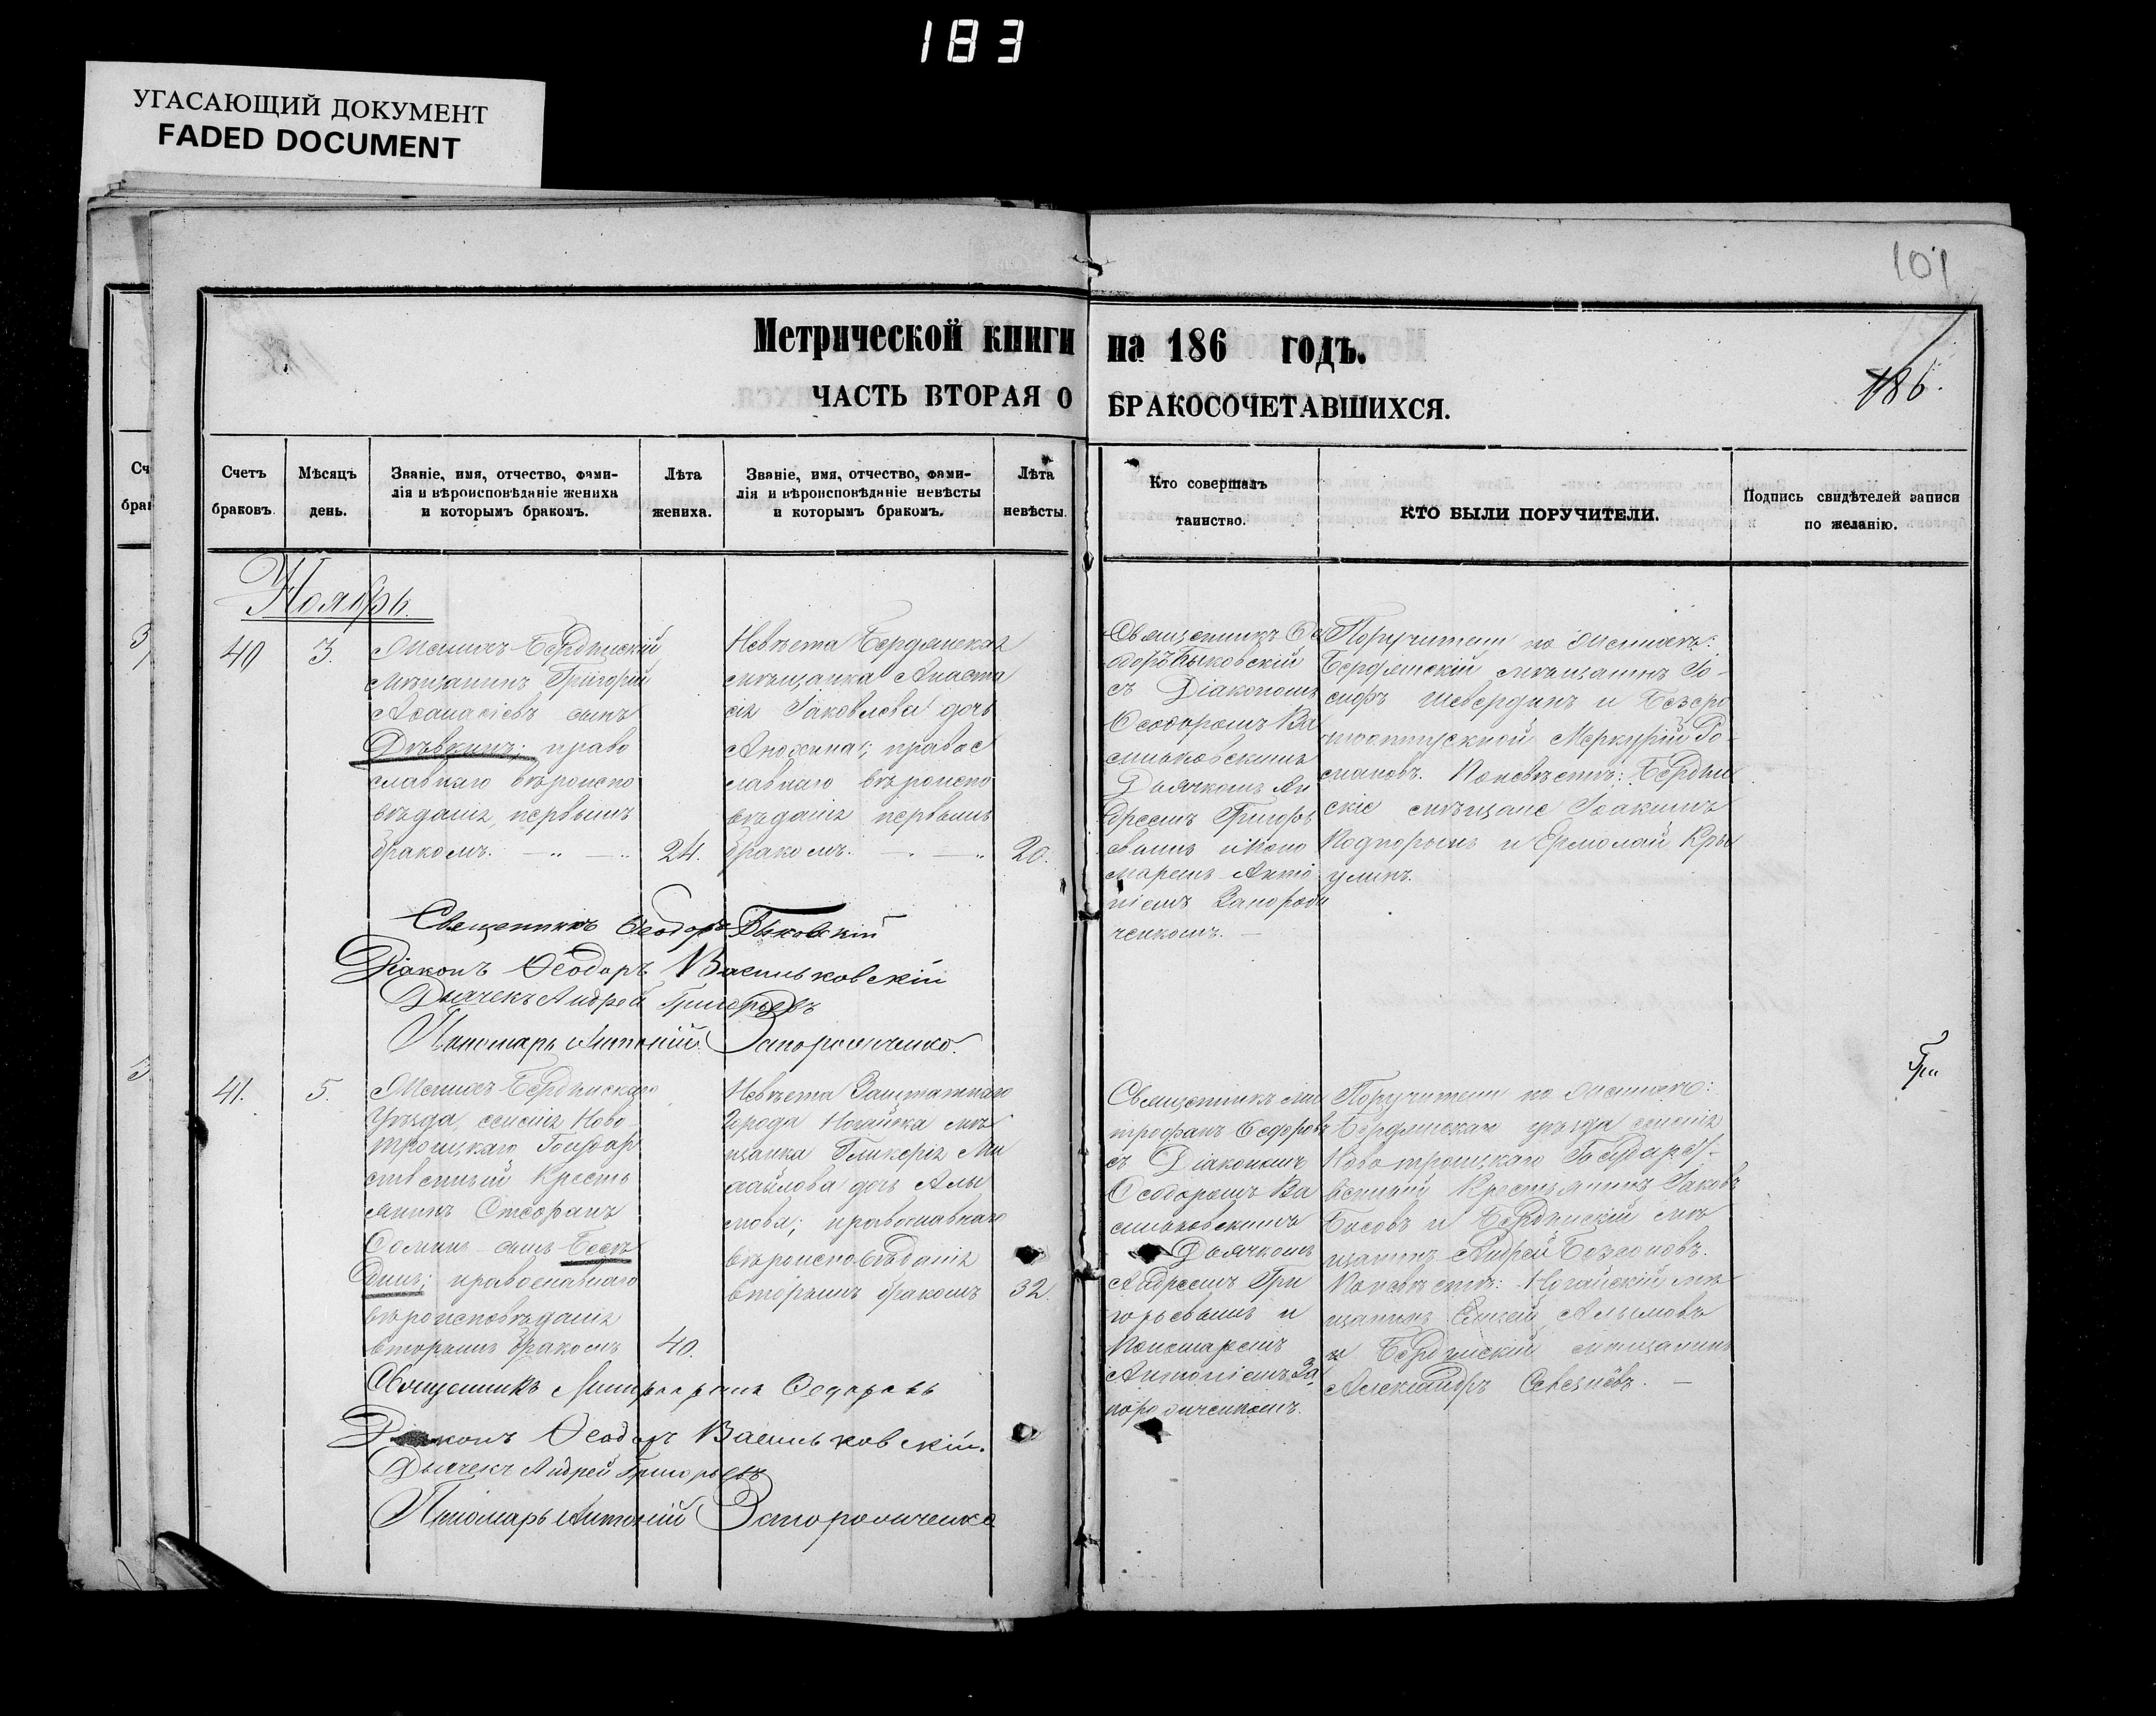 183
УГАСАЮЩИЙ ДОКУМЕНТ
FADED DOCUMENT
101
Метрической книги на 186 годъ.
186.
ЧАСТЬ ВТОРАЯ О БРАКОСОЧЕТАВШИХСЯ.
Счетъ браковъ.
Мѣсяцъ день.
Званіе, имя, отчество, фами-
лія и вѣроисповѣданіе жениха
и которымъ бракомъ.
Лѣта жениха.
Званіе, имя, отчество, фами-
лія и вѣроисповѣданіе невѣсты
и которымъ бракомъ.
Лѣта невѣсты.
Кто совершалъ
таинство.
КТО БЫЛИ ПОРУЧИТЕЛИ.
Подпись свидѣтелей записи
по желанію.
Ноябрь.
40
3.
Женихъ Бердянскій
мѣщанинъ Григорій
Аѳанасіевъ сынъ
Дѣвкинъ; право
славнаго вѣроиспо
вѣданія, первымъ
бракомъ.
24.
Невѣста Бердянская
мѣщанка Анаста
сія Іаковлева дочь
Анохина; правос
лавнаго вѣроиспо
вѣданія первымъ
бракомъ.
20.
Священникъ Ѳе
одоръ Быковскій
съ Діакономъ
Ѳеодоромъ Ва
сильковскимъ
Дьячкомъ Ан
дреемъ Григорь
евымъ и Поно
маремъ Анто
ніемъ Запорож
ченкомъ.
Поручители по женихѣ:
Бердянскій мѣщанинъ Іо-
сифъ Шевердинъ и Безсро
чноотпускной Меркурій Ро-
мановъ. По невѣстѣ: Бердян
скіе мѣщане Іоакимъ
и Ермолай
Священникъ Ѳеодоръ Быковскій
Діаконъ Ѳеодоръ Васильковскій
Дьячекъ Андрей Григорьевъ
Пономарь Антоній Запорожченко.
41.
5.
Женихъ Бердянскаго
Уѣзда, селенія Ново
троицкаго Государ
ственный Кресть
янинъ Стефанъ
Ѳоминъ сынъ Бесѣ
динъ; православнаго
вѣроисповѣданія
вторымъ бракомъ
40.
Невѣста Заштатнаго
Города Ногайска мѣ
щанка Гликерія Ми
хайлова дочь Алы
мова; православнаго
вѣроисповѣданія
вторымъ бракомъ
32.
Священникъ Ми
трофанъ Ѳедоровъ
съ Діакономъ
Ѳеодоромъ Ва
сильковскимъ
Дьячкомъ
Андреемъ Гри
горьевымъ и
Пономаремъ
Антоніемъ За
порожченкомъ.
Поручители по женихѣ:
Бердянскаго уѣзда селенія
Новотроицкаго Государст-
венный Крестьянинъ Іаковъ
и Бердянскій мѣ
щанинъ Андрей
По невѣстѣ: Ногайскій мѣ
щанинъ Алымовъ
и Бердянскій мѣщанинъ
Александръ
Священникъ Митрофанъ Ѳедоровъ
Діаконъ Ѳеодоръ Васильковскій.
Дьячекъ Андрей Григорьевъ
Пономарь Антоній Запорожченко